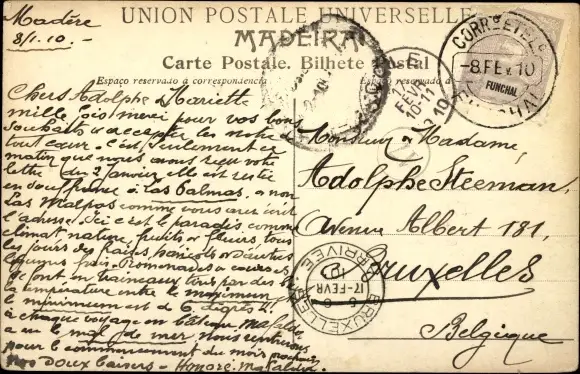 Madère
8/1.10.-
UNION POSTALE UNIVERSELLE
MADEIRA
Carte Postale. Bilhete Postal
Espaço reservado á correspondencia
Espaço reservado á
CORREIO E TELEG
-8.FEV.10
FUNCHAL
FUNCHAL
Chers Adolphe & Mariette
mille fois merci pour vos bons
souhaits & accepter les notres de
tout cœur. c'est seulement ce
matin que nous avons reçu votre
lettre du 2 Janvier, elle est restée
en souffrance à Las Palmas, & non
Las Malpas comme vous avez écrit
l'adresse. Ici c'est le paradis comme
climat, nature, fruits & fleurs, tous
les jours des haricots & d'autres
légumes frais. Promenades & courses
se font en traineaux tirés par des
température entre le maximum &
le minimum est de 6 degrés.
à chaque voyage en bateau
a eu le mal de mer, nous rentrerons
pour le commencement du mois prochain
Nos doux baisers - Honoré.
Monsieur & Madame
Adolphe Steeman,
Avenue Albert 181,
Bruxelles
Belgique
BRUXELLES
ARRIVEE
17-FEVR